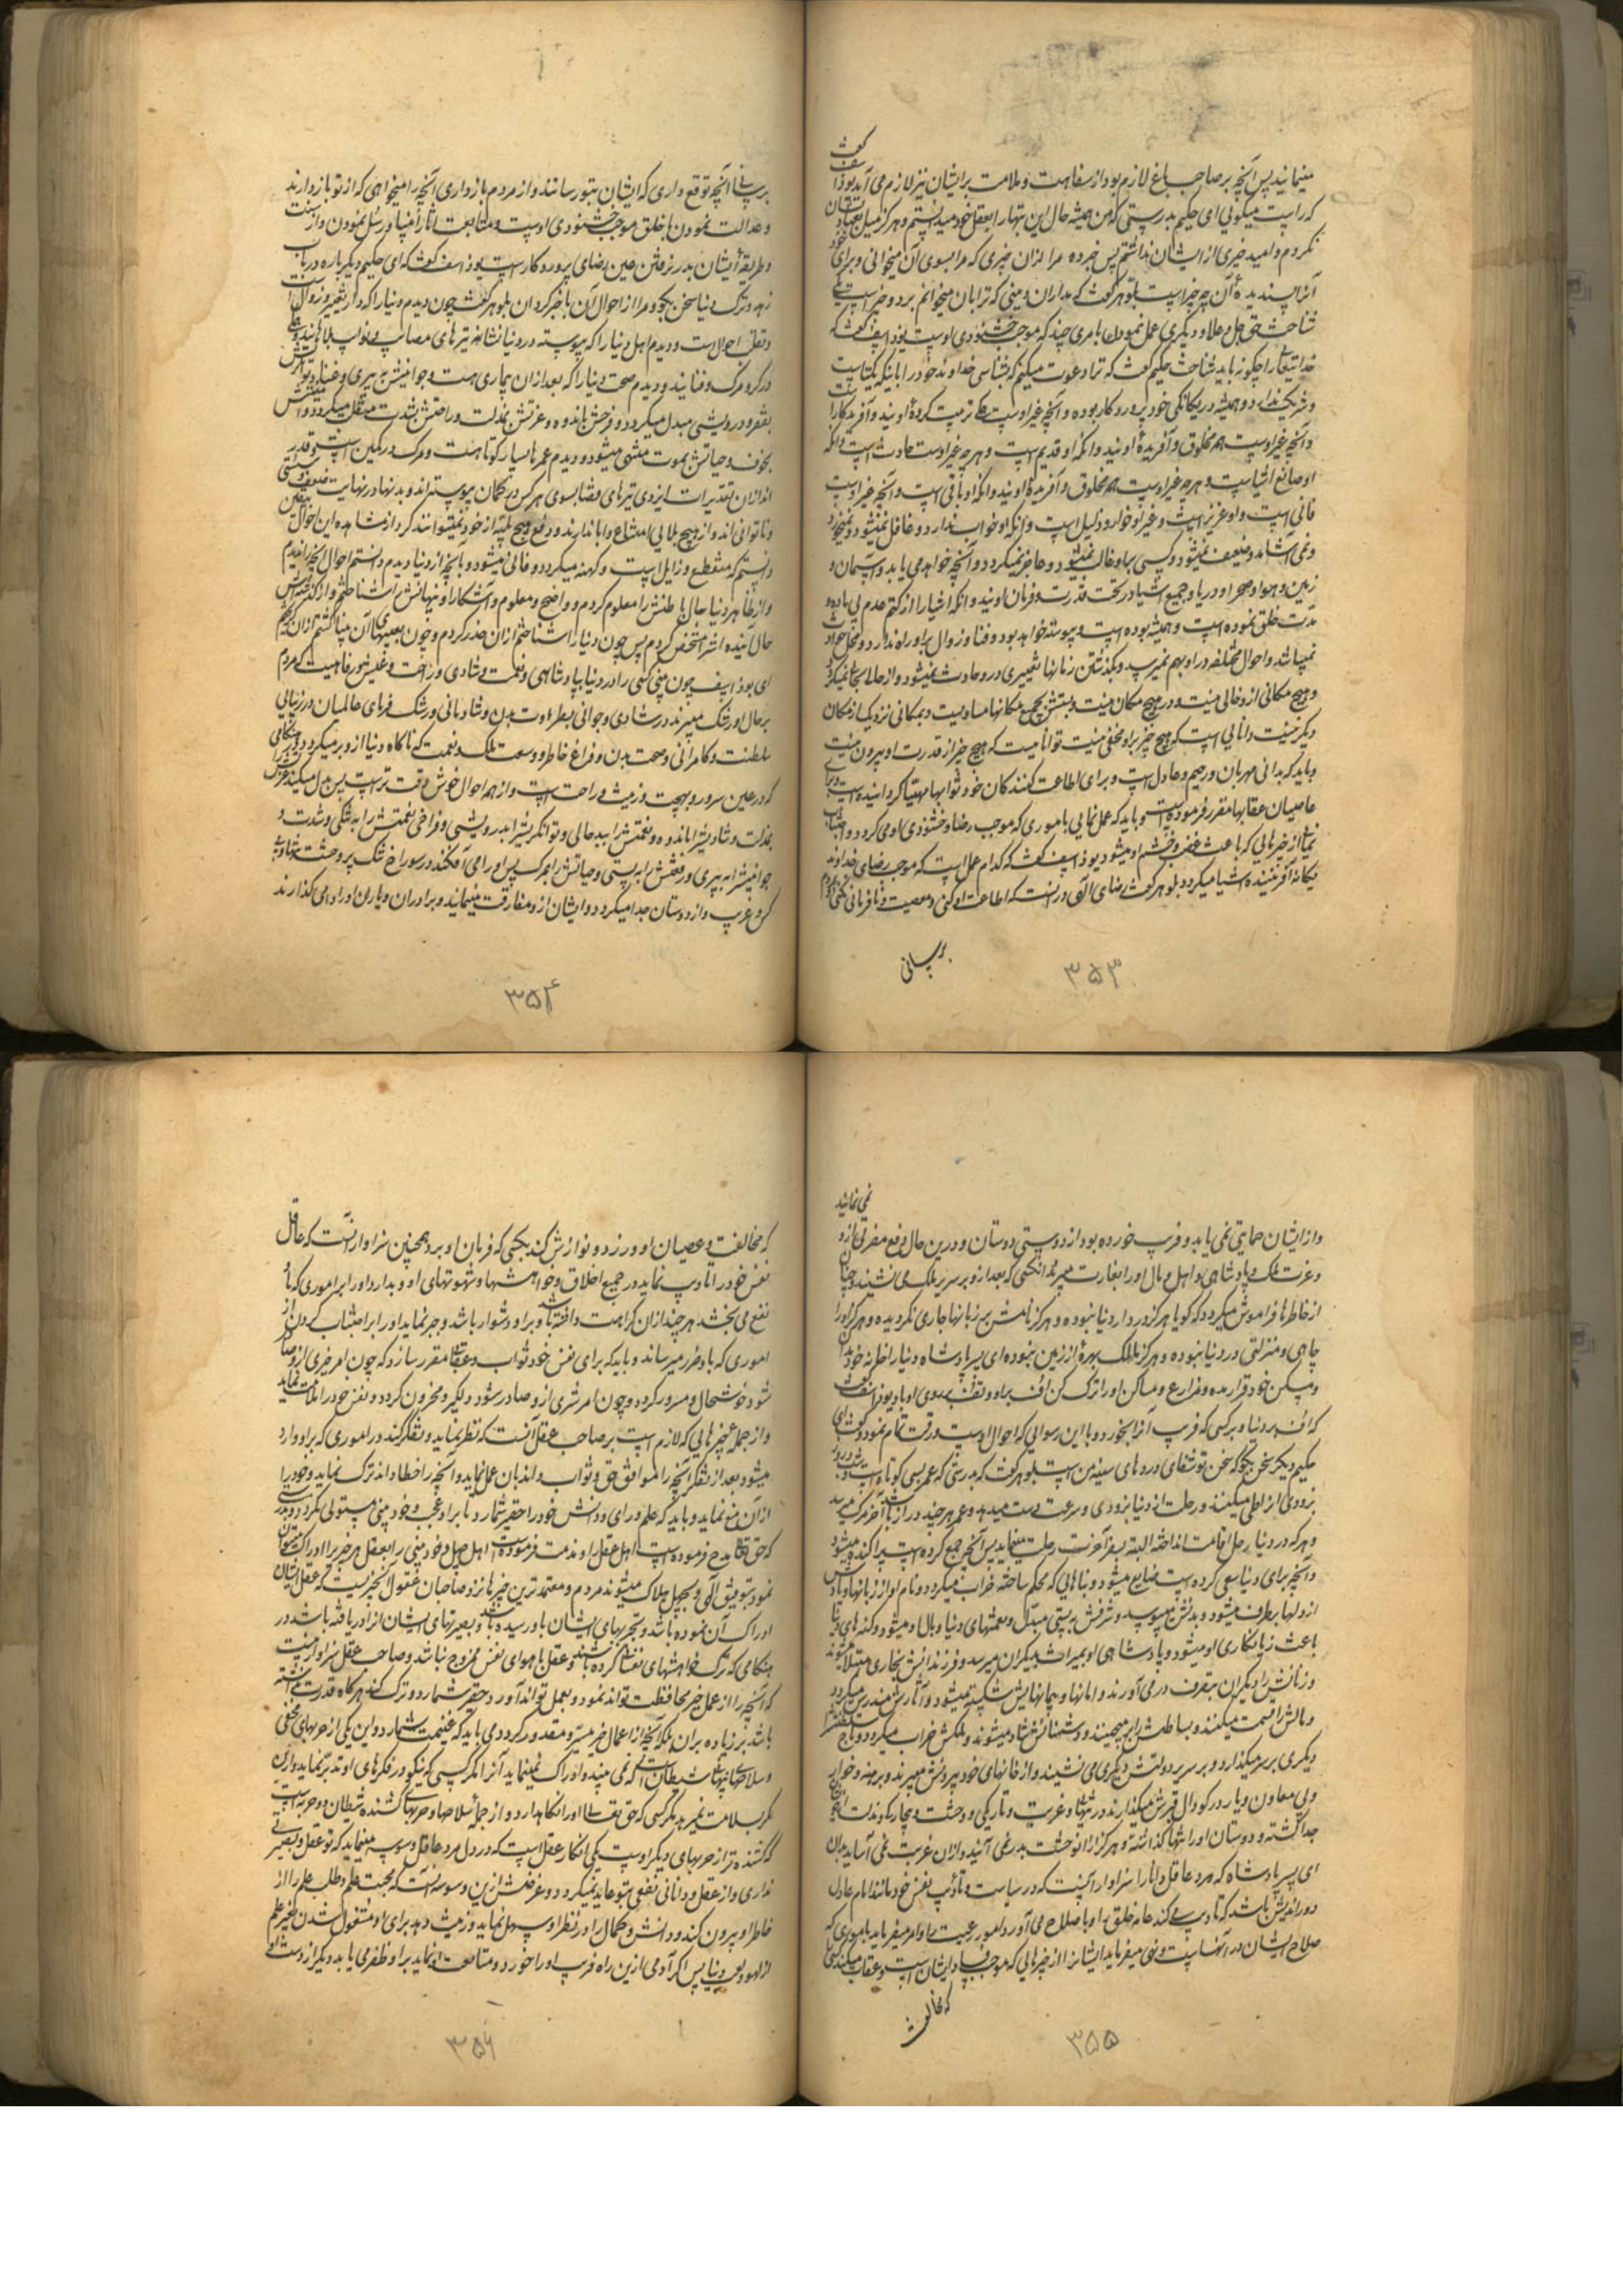 گفت
مینمایند پس آنچه بر صاحب باغ لازم بود از سفاهت و ملامت بر ایشان نیز لازم می آید یوذاسف
که راست میگوئی ای حکیم بدرستی که من همیشه حال این بتها را بعقل خود میدانستم و هرگز میل بعبادتشان
نکردم و امید خیری از ایشان نداشتم پس خبر ده مرا از آن چیزی که مرا بسوی آن میخوانی و برای خود
آنرا پسندیدهٔ آن چه چیز است بلوهر گفت که مدار آن دینی که ترا بآن میخوانم بر دو چیز است یکی
شناخت حق جل و علا و دیگری عمل نمودن بامری چند که موجب خشنودی اوست یوذاسف گفت که
خدایتعالی را چگونه باید شناخت حکیم گفت که ترا دعوت میکنم که بشناسی خداوند خود را باینکه یکتاست
و شریک ندارد و همیشه در یگانگی خود پروردگار بوده و آنچه غیر اوست همه تربیت کردهٔ اویند و آفریدگار است
و آنچه غیر اوست همه مخلوق و آفریدهٔ اویند و آنکه او قدیم است و هر چه غیر اوست حادث است و آنکه
او صانع اشیاست و هر چه غیر اوست همه مخلوق و آفریدهٔ اویند و آنکه او باقی است و آنچه غیر اوست
فانی است و او عزیز است و غیر او خوار و ذلیل است و آنکه او خواب ندارد و غافل نمیشود و نمیخورد
و نمی آشامد و ضعیف نمیشود و کسی بر او غالب نمیشود و عاجز نمیگردد و آنچه خواهد می یابد و آسمان و
زمین و هوا و صحرا و دریا و جمیع اشیا در تحت قدرت و فرمان اویند و آنکه اشیا را از کتم عدم بی ماده و
مدت خلق نموده است و همیشه بوده است و پیوسته خواهد بود و فنا و زوال بر او راه ندارد و محل حوادث
نمیباشد و احوال مختلفه در او بهم نمیرسد و بگذشتن زمانها تغییری در او حادث نمیشود و از حالی بحالی نمیگردد
و هیچ مکانی از او خالی نیست و در هیچ مکان نیست و نسبتش بجمیع مکانها مساویست و بمکانی نزدیکتر از مکان
دیگر نیست دانائی است که هیچ چیز بر او مخفی نیست توانائیست که هیچ چیز از قدرت او بیرون نیست
و باید که بدانی مهربان و رحیم و عادل است و برای اطاعت کنندگان خود ثوابها مهیا گردانیده است و برای
عاصیان عقابها مقرر فرموده است و باید که عمل نمائی باموری که موجب رضا و خشنودی او می گردد و اجتناب
نمائی از چیزهائی که باعث غضب و خشم او میشود یوذاسف گفت که کدام عمل است که موجب رضای خداوند
یگانه آفریننده اشیا میگردد بلوهر گفت رضای الهی در آنست که اطاعت او کنی و معصیت و نافرمانی نکنی و بمردم
برسانی
۳۵۳
برسانی آنچه توقع داری که ایشان بتو رسانند و از مردم بازداری آنچه را میخواهی که از تو بازدارند
و عدالت نمودن با خلق موجب خشنودی اوست و متابعت آثار انبیا و رسل نمودن و از سنت
و طریقهٔ ایشان بدر نرفتن عین رضای پروردگار است یوذاسف گفت که ای حکیم دیگر باره در باب
زهد و ترک دنیا سخن بگو و مرا از احوال آن با خبر گردان بلوهر گفت چون دیدم دنیا را که دار تغییر و زوال است
و تقلب احوال است و دیدم اهل دنیا را که پیوسته در دنیا نشانه تیرهای مصائب و نوائب بلاها هستند
در گرو مرگ و فنایند و دیدم صحت دنیا را که بعد از آن بیماری هست و جوانیش به پیری و غنایش
بفقر و درویشی مبدل میگردد و فرحش باندوه و عزتش بمذلت و راحتش بشدت منتقل میگردد و امنیتش
بخوف و حیاتش بموت منتهی میشود و دیدم عمرها بسیار کوتاهست و مرگ در کمین است
انداز آن تقدیرات ایزدی تیرهای قضا بسوی هر کس در کمان پیوسته اند و بدنها در نهایت ضعف و سستی
و ناتوانی اند و از هیچ بلائی امتناع و ابا ندارند و دفع هیچ بلیه از خود نمیتوانند کرد از مشاهده این احوال بیقین
دانستم که منقطع و زایل است و کهنه میگردد و فانی میشود و بآنچه از دنیا دیدم دانستم احوال آنچه را ندیدم
و از ظاهر دنیا حال باطنش را معلوم کردم و واضح و معلوم و آشکار او نهانش را شناختم و از گذشته اش
حال آینده اش را مشخص کردم پس چون دنیا را شناختم از آن حذر کردم و چون بعیبهای آن بینا گشتم از آن گریختم
ای یوذاسف چون بینی کسی را در دنیا بپادشاهی و نعمت و شادی و راحت و عیش و رفاهیت که مردم
بر حال او رشک میبرند در شادی و جوانی بطراوت بدن و شادمانی و رشک فرمای عالمیان در زیبائی
سلطنت و کامرانی و صحت بدن و فراغ خاطر و وسعت ملک و نعمت که ناگاه دنیا از او بر میگردد در هنگامی
که در عین سرور و بهجت و زینت و راحت است و از همه احوال خوش وقت تر است پس بدل میکند عزتش را
بمذلت و شادیش را باندوه و نعمتش را ببدحالی و توانگریش را بدرویشی و فراخی نعمتش را به تنگی و شدت و
جوانیش را به پیری و رفعتش را به پستی و حیاتش را بمرگ پس او را می افکند در سوراخ تنگ پر وحشت
کرو غریب و از دوستان جدا میگردد و ایشان از او مفارقت مینمایند و برادران و یاران او را وا می گذارند
۳۵۴
نمی نمایند
و از ایشان حمایتی نمی یابد و فریب خورده بود از دوستی دوستان و درین حال دفع مضرتی از او
و عزت ملک و پادشاهی و اهل و مال او را بغارت میبرند آنکسی که بعد از او بر سریر ملک می نشیند و چنان
از خاطرها فراموش میگردد که گویا هرگز در دار دنیا نبوده و هرگز نامش بر زبانها جاری نگردیده و هرگز او را
جاهی و منزلتی در دنیا نبوده و هرگز مالک بهرهٔ از زمین نبوده ای پسر پادشاه دنیا را خانه خود مدان
و مسکن خود قرار مده و مزارع و مساکن او را ترک کن اف بر او و تف بر روی او باد یوذاسف گفت
که اف بر دنیا و بر کسی که فریب آنرا بخورد و با این رسوائی که احوال اوست و رقت تمام نمود و گفت ای
حکیم دیگر سخن بگو که سخن تو شفای دردهای سینه من است بلوهر گفت که بدرستی که عمر بسی کوتاه است و شب و روز
بزودی آنرا طی میکنند و رحلت از دنیا بزودی و سرعت دست میدهد و عمر هر چند دراز باشد آخر مرگ میرسد
و هر که در دنیا رحل اقامت انداخته البته بسفر آخرت رحلت مینماید پس آنچه جمع کرده است پراکنده میشود
و آنچه برای دنیا سعی کرده است ضایع میشود و بناهائی که محکم ساخته خراب میگردد و نام او از زبانها و یادش
از دلها برطرف میشود و بدنش میپوسد و شرفش به پستی مبدل و نعمتهای دنیا وبال او میشود و کسبهای دنیا
باعث زیانکاری او میشود و پادشاهی او بمیراث بدیگران میرسد و فرزندانش بخاری مبتلا میشوند
و زنانش را دیگران بتصرف در می آورند و امانها و پیمانهایش شکسته میشود و آثارش مندرس میگردد
و مالش را قسمت میکنند و بساطش را بر میچینند و دشمنانش شاد میشوند و ملکش خراب میگردد و تاج سلطنتش را
دیگری بر سر میگذارد و بر سریر دولتش دیگری می نشیند و از خانهای خود بیرونش میبرند و برهنه و خوار
و بی معاون و یاور در گودال قبرش میگذارند در تنهائی و غربت و تاریکی و وحشت و بیچارگی و مذلت
جدا گشته و دوستان او را تنها گذاشته و هرگز از آن وحشت بدر نمی آید و از آن غربت نمی آساید بدان
ای پسر پادشاه که مرد عاقل دانا را سزاوار آنست که در سیاست و تأدیب نفس خود مانند امام عادل
دوراندیش باشد که تادیب می کند عامه خلق را و باصلاح می آورد امور رعیت را و امر میفرماید باموری که
صلاح ایشان در آنهاست و نهی میفرماید ایشانرا از چیزهائی که موجب فساد ایشان است و عقاب میکند کسی را
که مخالفت
۳۵۵
که مخالفت و عصیان او ورزد و نوازش کند بکسی که فرمان او برد همچنین سزاوار آنست که عاقل
نفس خود را تادیب نماید در جمیع اخلاق و خواهشها و شهوتهای او و بدارد او را بر اموری که باو
نفع می بخشد هر چند از آن کراهت داشته باشد و بر او دشوار باشد و جبر نماید او را بر اجتناب کردن از
اموری که باو ضرر میرساند و باید که برای نفس خود ثواب و عقاب مقرر سازد که چون امر خیری از او صادر
شود خوشحال و مسرور گردد و چون امر شری از او صادر شود دلگیر و محزون گردد و نفس خود را ملامت نماید
و از جمله چیزهائی که لازم است بر صاحب عقل آنست که نظر نماید و تفکر کند در اموری که بر او وارد
میشود بعد از تفکر آنچه را موافق حق و ثواب داند بآن عمل نماید و آنچه را خطا داند ترک نماید و خود را
از آن منع نماید و باید که علم و رای و دانش خود را حقیر شمارد تا بر او عجب و خود بینی مستولی نگردد و بدرستی
که حق تعالی مدح فرموده است اهل عقل را و مذمت فرموده است اهل جهل و خود بینی را بعقل هر چیز را ادراک میتوان
نمود بتوفیق الهی و بجهل هلاک میشوند مردم و معتمدترین چیزها نزد صاحبان عقول آنچیزیست که عقل ایشان
ادراک آن نموده باشد و تجربهای ایشان باو رسیده باشد و بصیرتهای ایشان آنرا دریافته باشد در
هنگامی که ترک خواهشهای نفسانی کرده باشند و عقل با هوای نفس ممزوج نباشد و صاحب عقل سزاوار نیست
که آنچه را از عمل خیر محافظت تواند نمود و بعمل تواند آورد حقیر شمارد و ترک کند هرگاه قدرت داشته
باشد بر زیاده بر آن بلکه آنچه از اعمال خیر میسر و مقدور گردد می باید که غنیمت شمارد و این یکی از حربهای مخفی
و سلاحهای پنهان شیطان است که نمی بیند و ادراک نمینماید آنرا مگر کسی که نیکو در فکرهای او تدبر نماید و از آن
مکر بسلامت نمیرهد مگر کسی که حق تعالی او را نگاهدارد و از جملهٔ سلاحها و حربهای کشنده شیطان دو حربه است
که کشنده تر از حربهای دیگر اوست یکی انکار عقل است که در دل مرد عاقل وسوسه مینماید که تو عقل و بصیرتی
نداری و از عقل و دانائی نفعی بتو عاید نمیگردد و غرضش ازین وسوسه آنست که محبت علم و طلب علم را از
خاطر او بیرون کند و دانش و کمال را در نظر او سهل نماید و زینت دهد برای او مشغول شدن بغیر علم
از لهو و لعب دنیا پس اگر آدمی ازین راه فریب او را خورد و متابعت او نماید بر او ظفر می یابد
۳۵۶